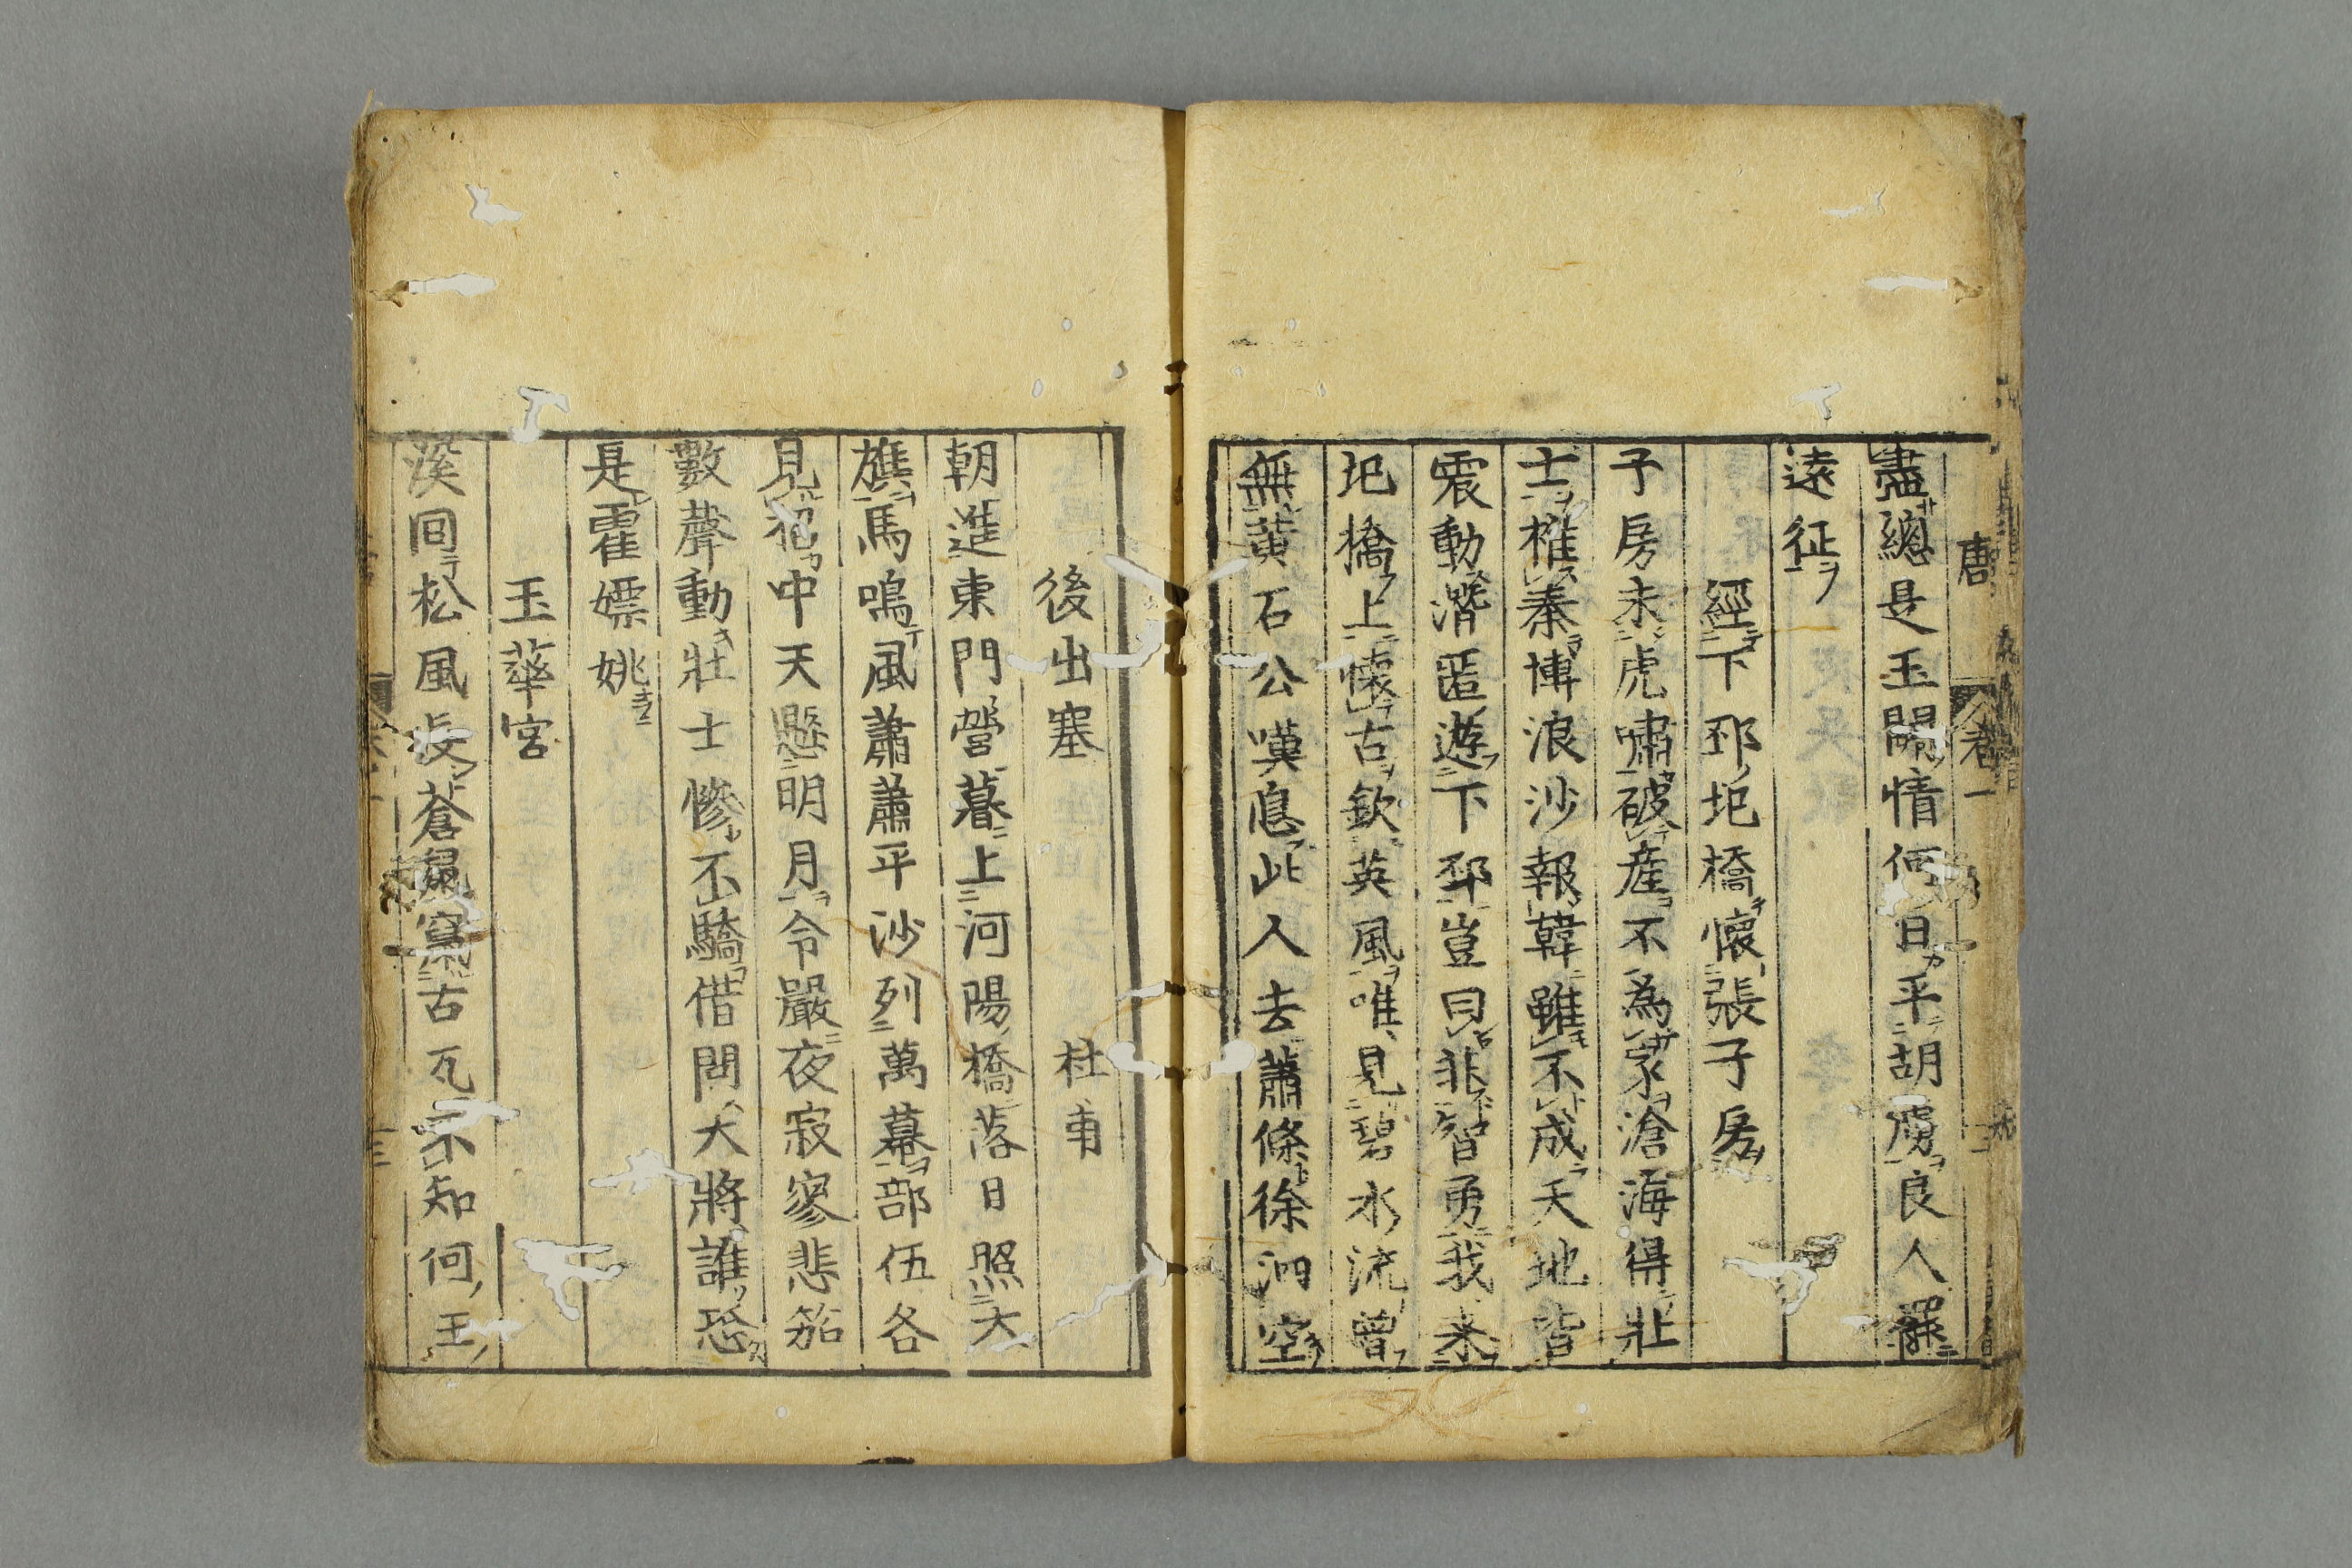 唐 卷一
盡總是玉關情何日平胡虜良人罷
遠征
經下邳圯橋懷張子房
子房未虎嘯破產不為家滄海得壯
士椎秦博浪沙報韓雖不成天地皆
震動潛匿遊下邳豈曰非智勇我来
圯橋上懷古欽英風唯見碧水流曾
無黄石公嘆息此人去蕭條徐泗空
後出塞 杜甫
朝進東門營暮上河陽橋落日照大
旗馬鳴風蕭蕭平沙列萬幕部伍各
見招中天懸明月令嚴夜寂寥悲笳
數聲動壯士慘不驕借問大將誰恐
是霍嫖姚
玉華宮
溪回松風長蒼鼠竄古瓦不知何王